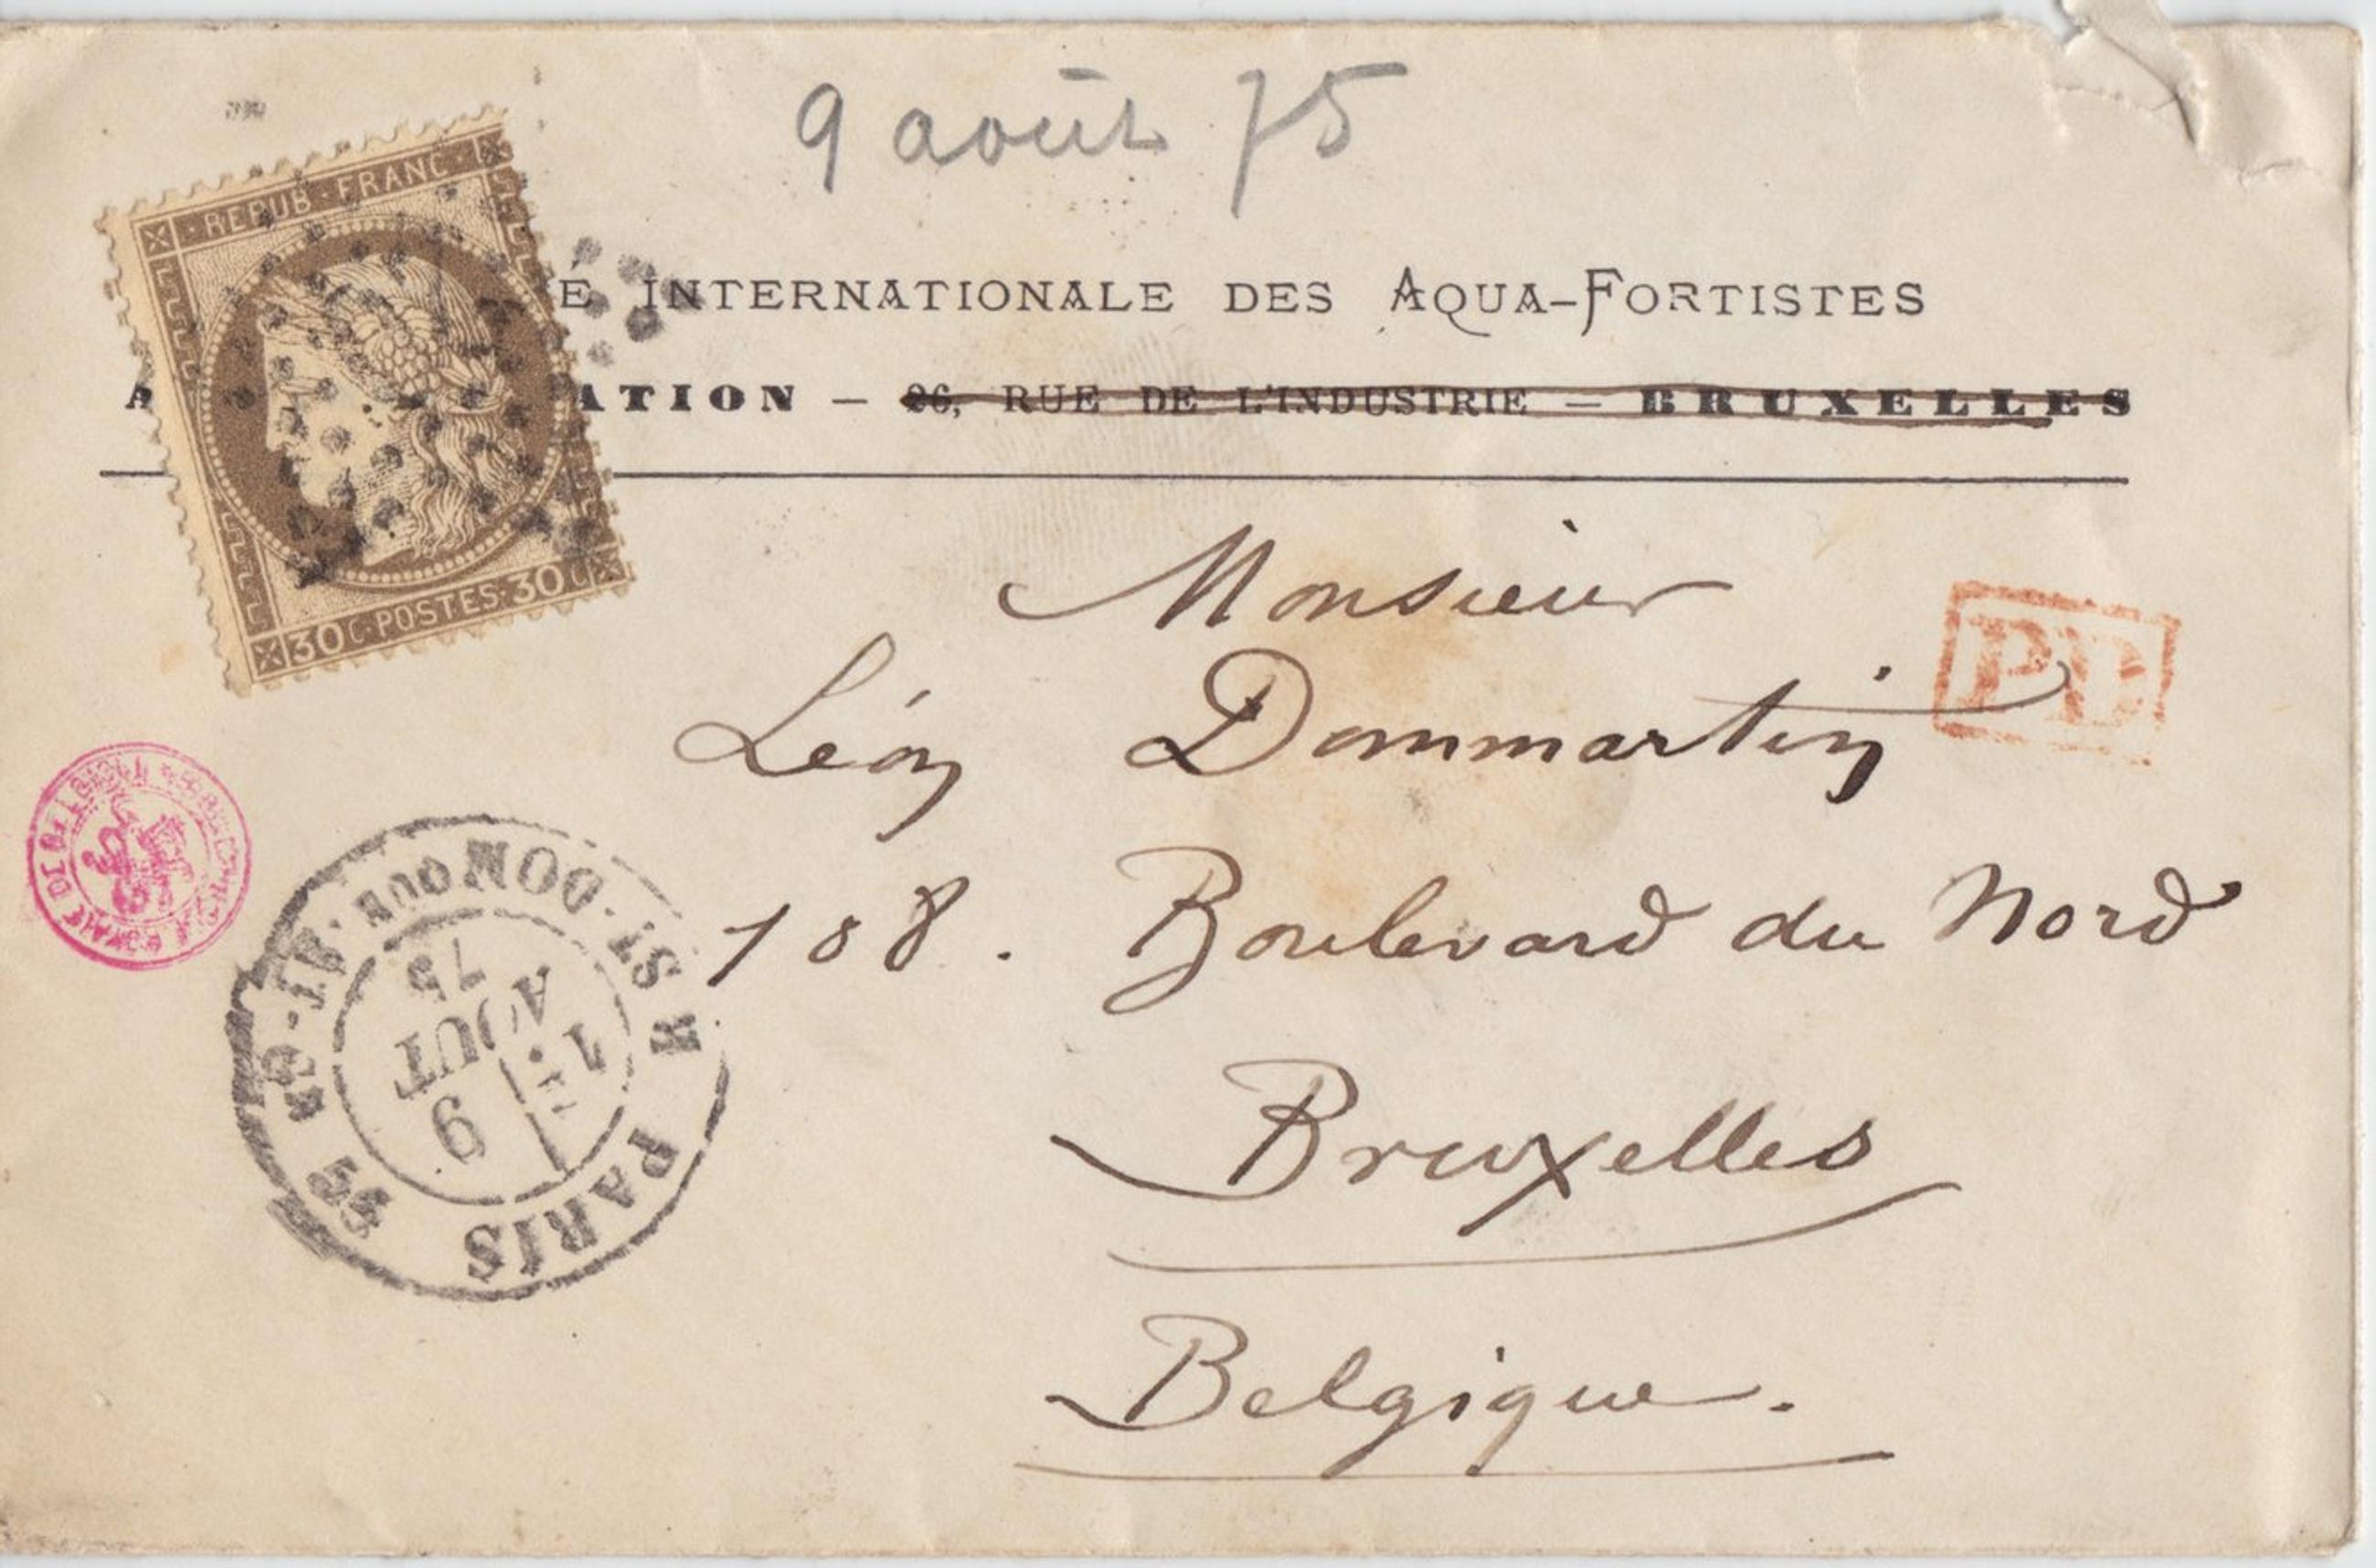 9 août 75
REPUB·FRANC·
30 C·POSTES·30 C
É INTERNATIONALE DES AQUA-FORTISTES
A ATION — 26, RUE DE L'INDUSTRIE — BRUXELLES
Monsieur
PD
Léon Dommartin
108. Boulevard du Nord
Bruxelles
Belgique.
PARIS
R. ST-DOM QUE. ST-GN 56
1E
9
AOUT
75